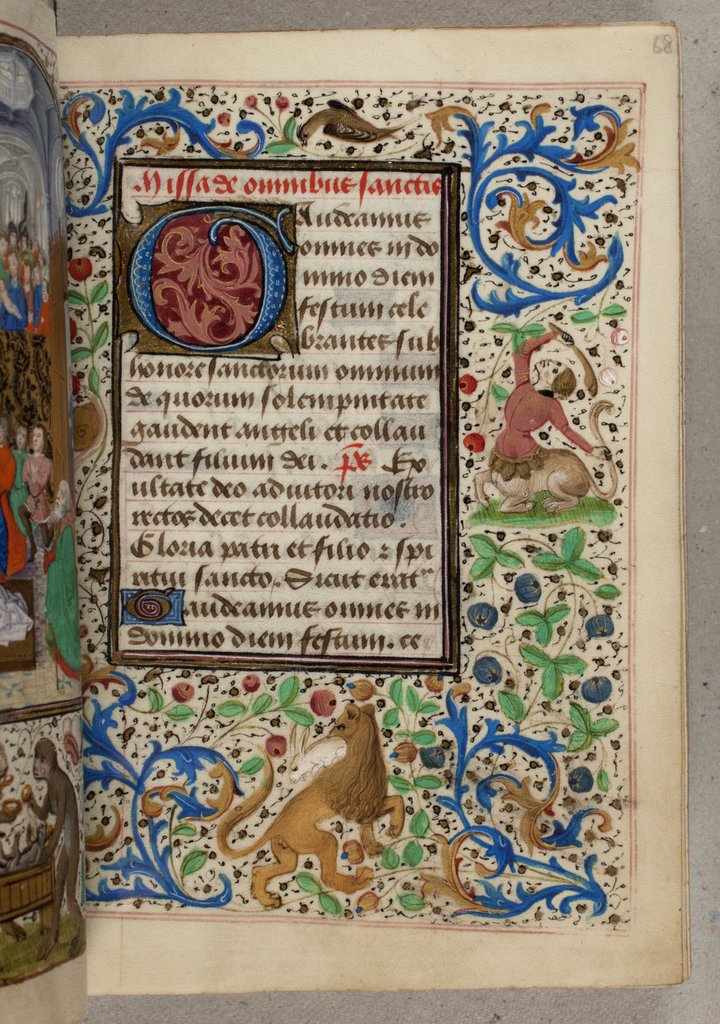 68
Missa de omnibus sanctis
Gaudeamus
omnes in do
mino diem
festum cele
brantes sub
honore sanctorum omnium
de quorum solempnitate
gaudent angeli et collau
dant filium dei. ps Ex
ultate deo adiutori nostro
rectos decet collaudatio.
Gloria patri et filio z spi
ritui sancto. Sicut erat
Gaudeamus omnes in
domino diem festum. ce